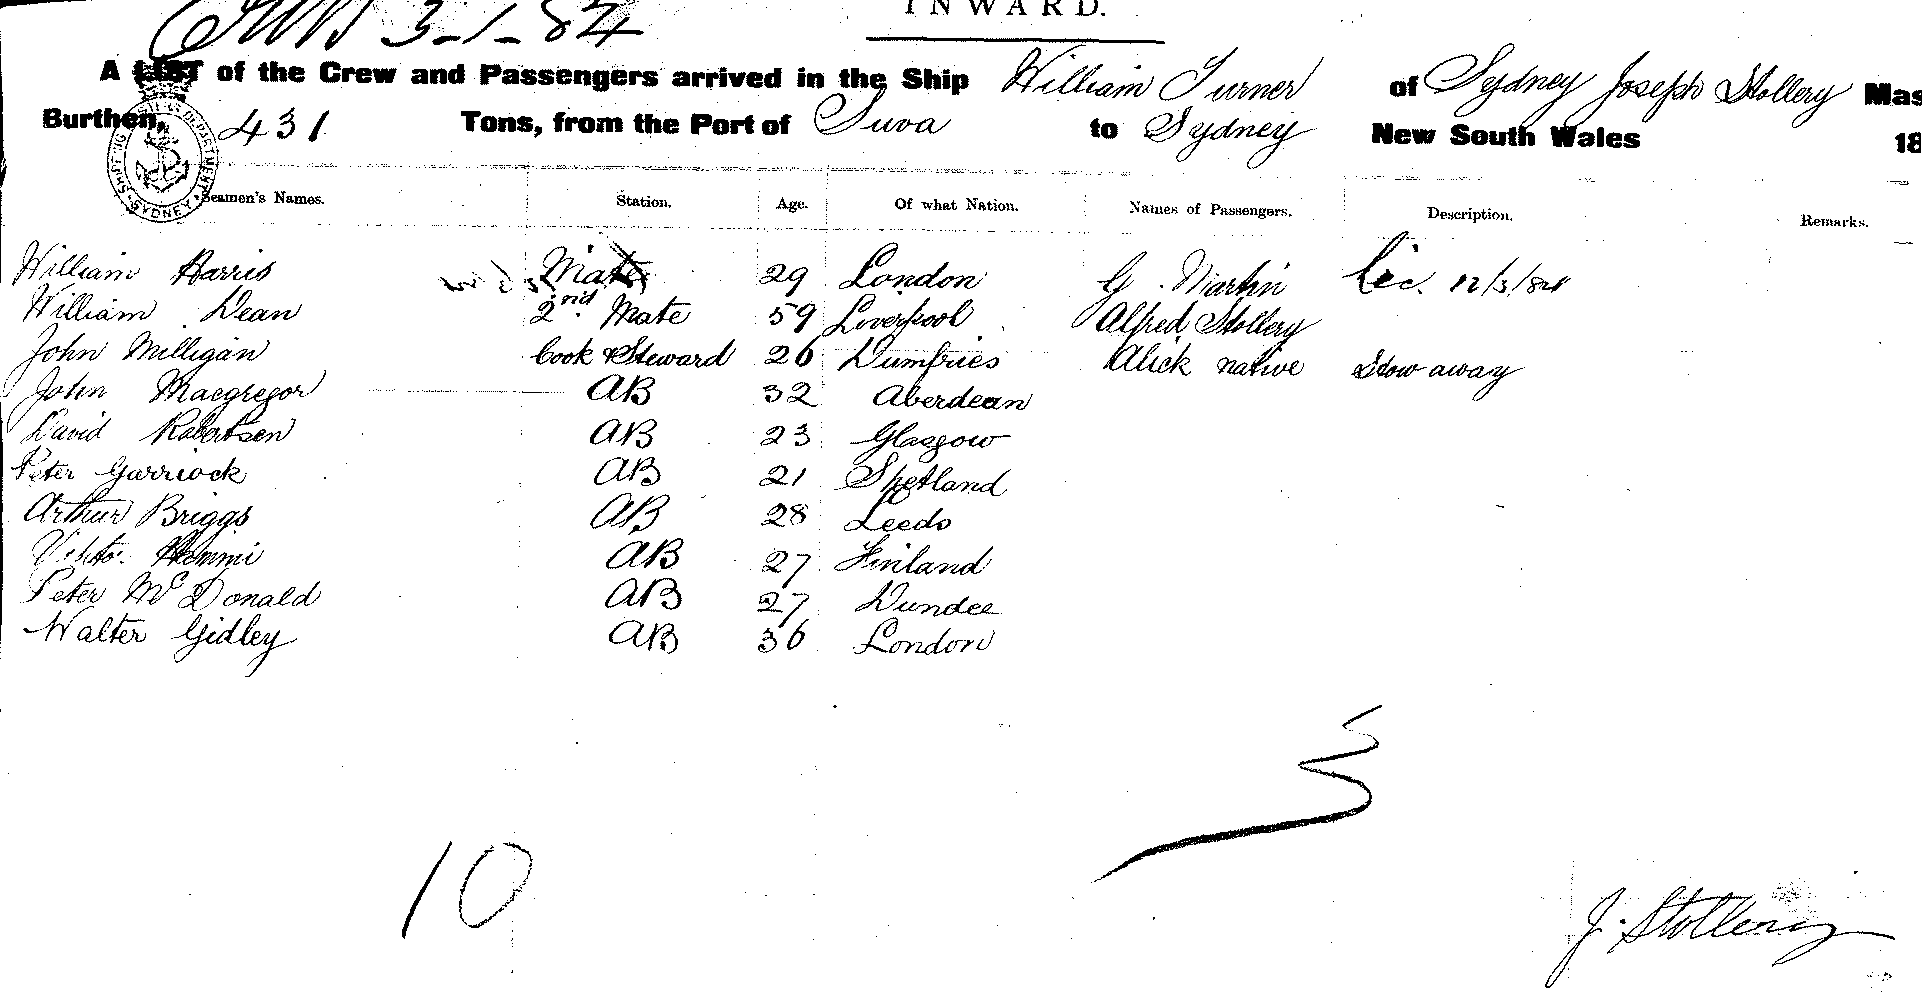 INWARD.
3-1-84
A LIST of the Crew and Passengers arrived in the Ship William Turner of Sydney Joseph Stollery Mas
Burthen, 431 Tons, from the Port of Suva to Sydney New South Wales 18
SHIPPING DEPARTMENT SYDNEY
Seamen's Names. Station. Age. Of what Nation. Names of Passengers. Description. Remarks.
William Harris Mate 29 London G. Martin 12/3/84
William Dean 2nd Mate 59 Liverpool Alfred Stollery
John Milligan Cook & Steward 26 Dumfries Alick native Stow away
John Macgregor AB 32 Aberdean
David Robertsen AB 23 Glasgow
Peter Garriock AB 21 Shetland
Arthur Briggs AB 28 Leeds
AB 27 Finland
Peter McDonald AB 27 Dundee
Walter Gidley AB 36 London
3
10
J. Stollery